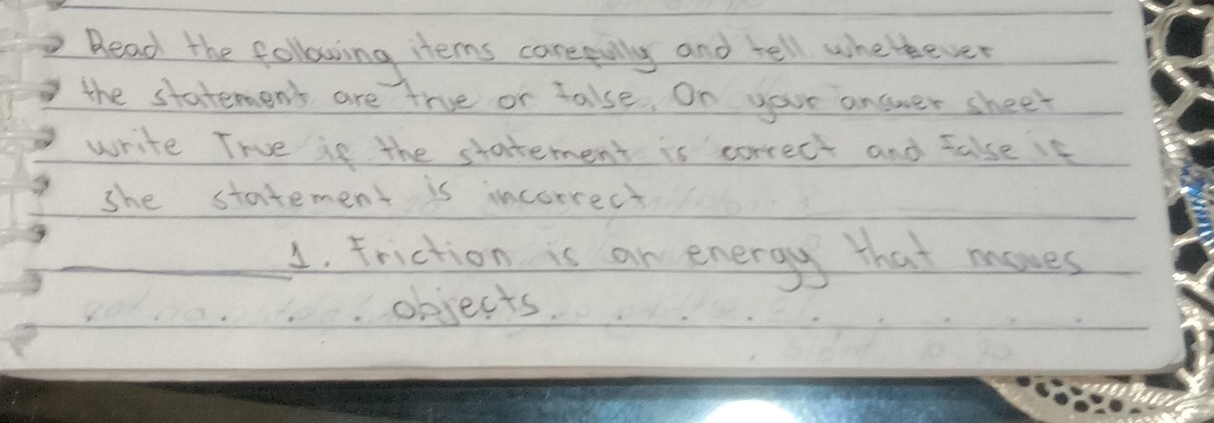 Read the following items carefully and tell whetever
the statement are true or false. On your answer sheet
write True if the statement is correct and False if
she statement is incorrect
1. Friction is an energy that moves
objects.